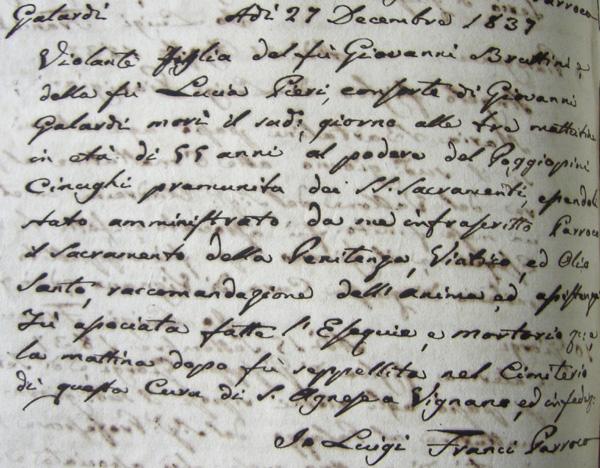 Parroco
Galardi Adi 27 Decembre 1837
Violante figlia del fù Giovanni Bruttini, e
della fù Lucia Pieri, consorte di Giovanni
Galardi morì il sud.º giorno alle tre mattutine
in età di 55 anni al podere del Poggiopini
Cinughi premunita dai SS. Sacramenti, essendoli
stato amministrato da me infrascritto Parroco
il Sacramento della Penitenza, Viatico, ed Olio
Santo, raccomandazione dell'anima, ed assistenza
Fù associata fatte l'Esequie, e mortorio
la mattina dopo fù seppellita nel Cimiterio
di questa Cura di S. Agnesa a Vignano, ed in fede
Io Luigi Franci Parroco